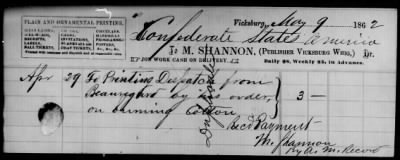 PLAIN AND ORNAMENTAL PRINTING.
Vicksburg, May 9 1862
Confederate States America
To M. SHANNON, (PUBLISHER VICKSBURG WHIG,) Dr.
FOR WORK CASH ON DELIVERY.
Daily $8, Weekly $3, in Advance.
Apr 29 To Printing Despatch from
Beauregard by his order, 3 —
on burning Cotton
Duplicate
Recd Payment
M. Shannon
By A. M.